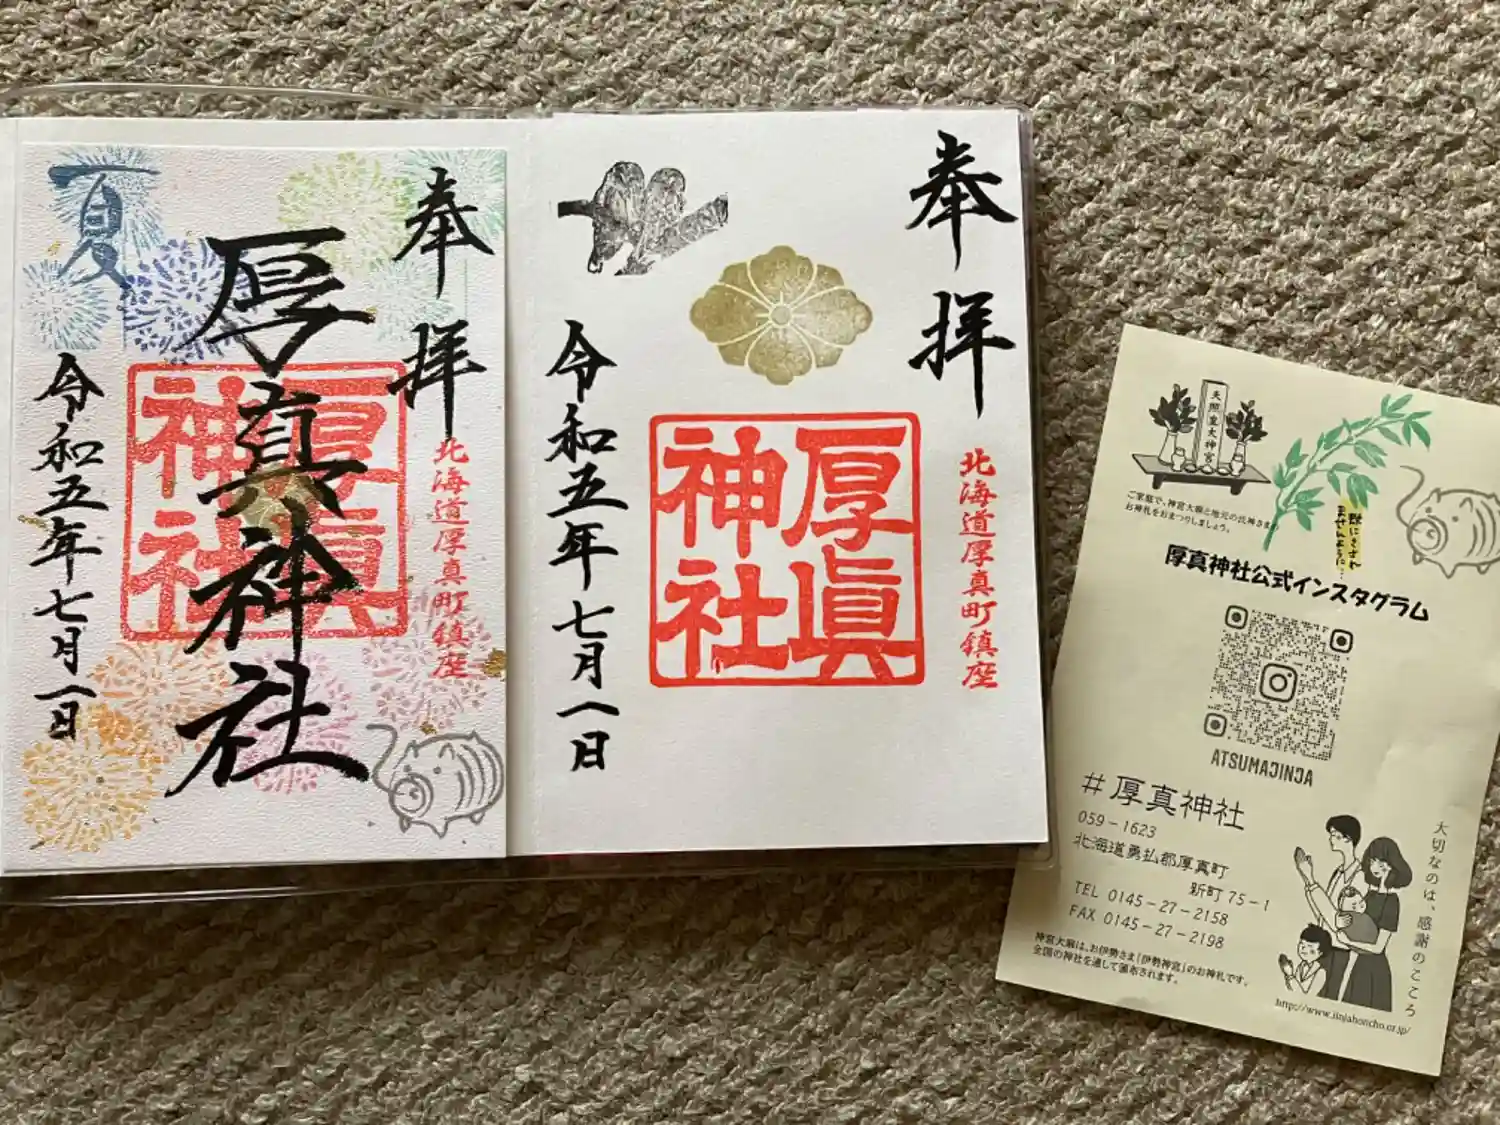 夏
奉拝
厚真神社
厚眞
神社
北海道厚真町鎮座
令和五年七月一日
奉拝
厚眞
神社
北海道厚真町鎮座
令和五年七月一日
天照皇大神宮
ご家庭で、神宮大麻と地元の氏神さまの
お神札をおまつりしましょう。
蚊にさされ
ませんように…
厚真神社公式インスタグラム
ATSUMAJINJA
#厚真神社
059-1623
北海道勇払郡厚真町
新町75-1
TEL 0145-27-2158
FAX 0145-27-2198
神宮大麻は、お伊勢さま「伊勢神宮」のお神札です。
全国の神社を通して頒布されます。
大切なのは、感謝のこころ
http://www.jinjahoncho.or.jp/